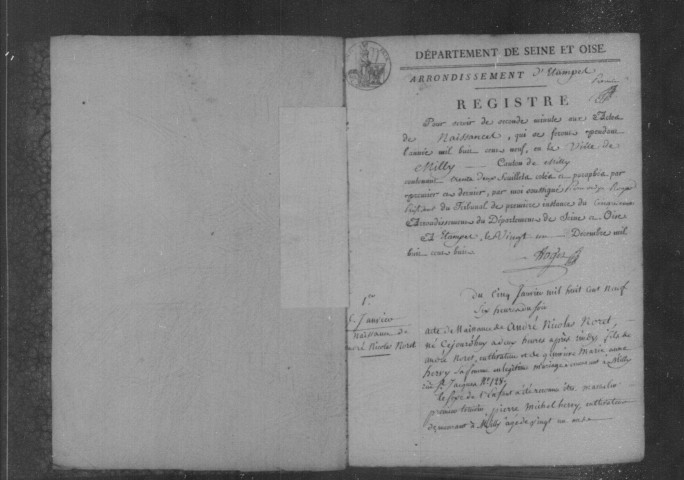 DÉPARTEMENT DE SEINE ET OISE.
ARRONDISSEMENT d'Etampes
REGISTRE
Pour servir de seconde minute aux Actes
de Naissances, qui se feront pendant
l'année mil huit cent neuf, en la Ville de
Milly Canton de Milly
contenant trente deux feuillets cotés et paraphés par
premier et dernier, par moi soussigné
du Tribunal de première instance du
Arrondissement du Département de Seine et Oise
A Etampes, le Vingt Décembre mil
huit cent huit
Du Cinq Janvier mil huit cent neuf
Six heures du soir
1er
5 Janvier
naissance de
André Nicolas Noret
acte de Naissance de André Nicolas Noret,
né Cejourdhuy a deux heures après midy, fils de
André Noret, cultivateur et de Marie anne
herry Sa femme en légitime mariage a Milly
rue St Jacques No 128
le sexe de l'Enfant a été reconnu être masculin
premier témoin, pierre Michel herry, cultivateur
demeurant à Milly agé de vingt un ans